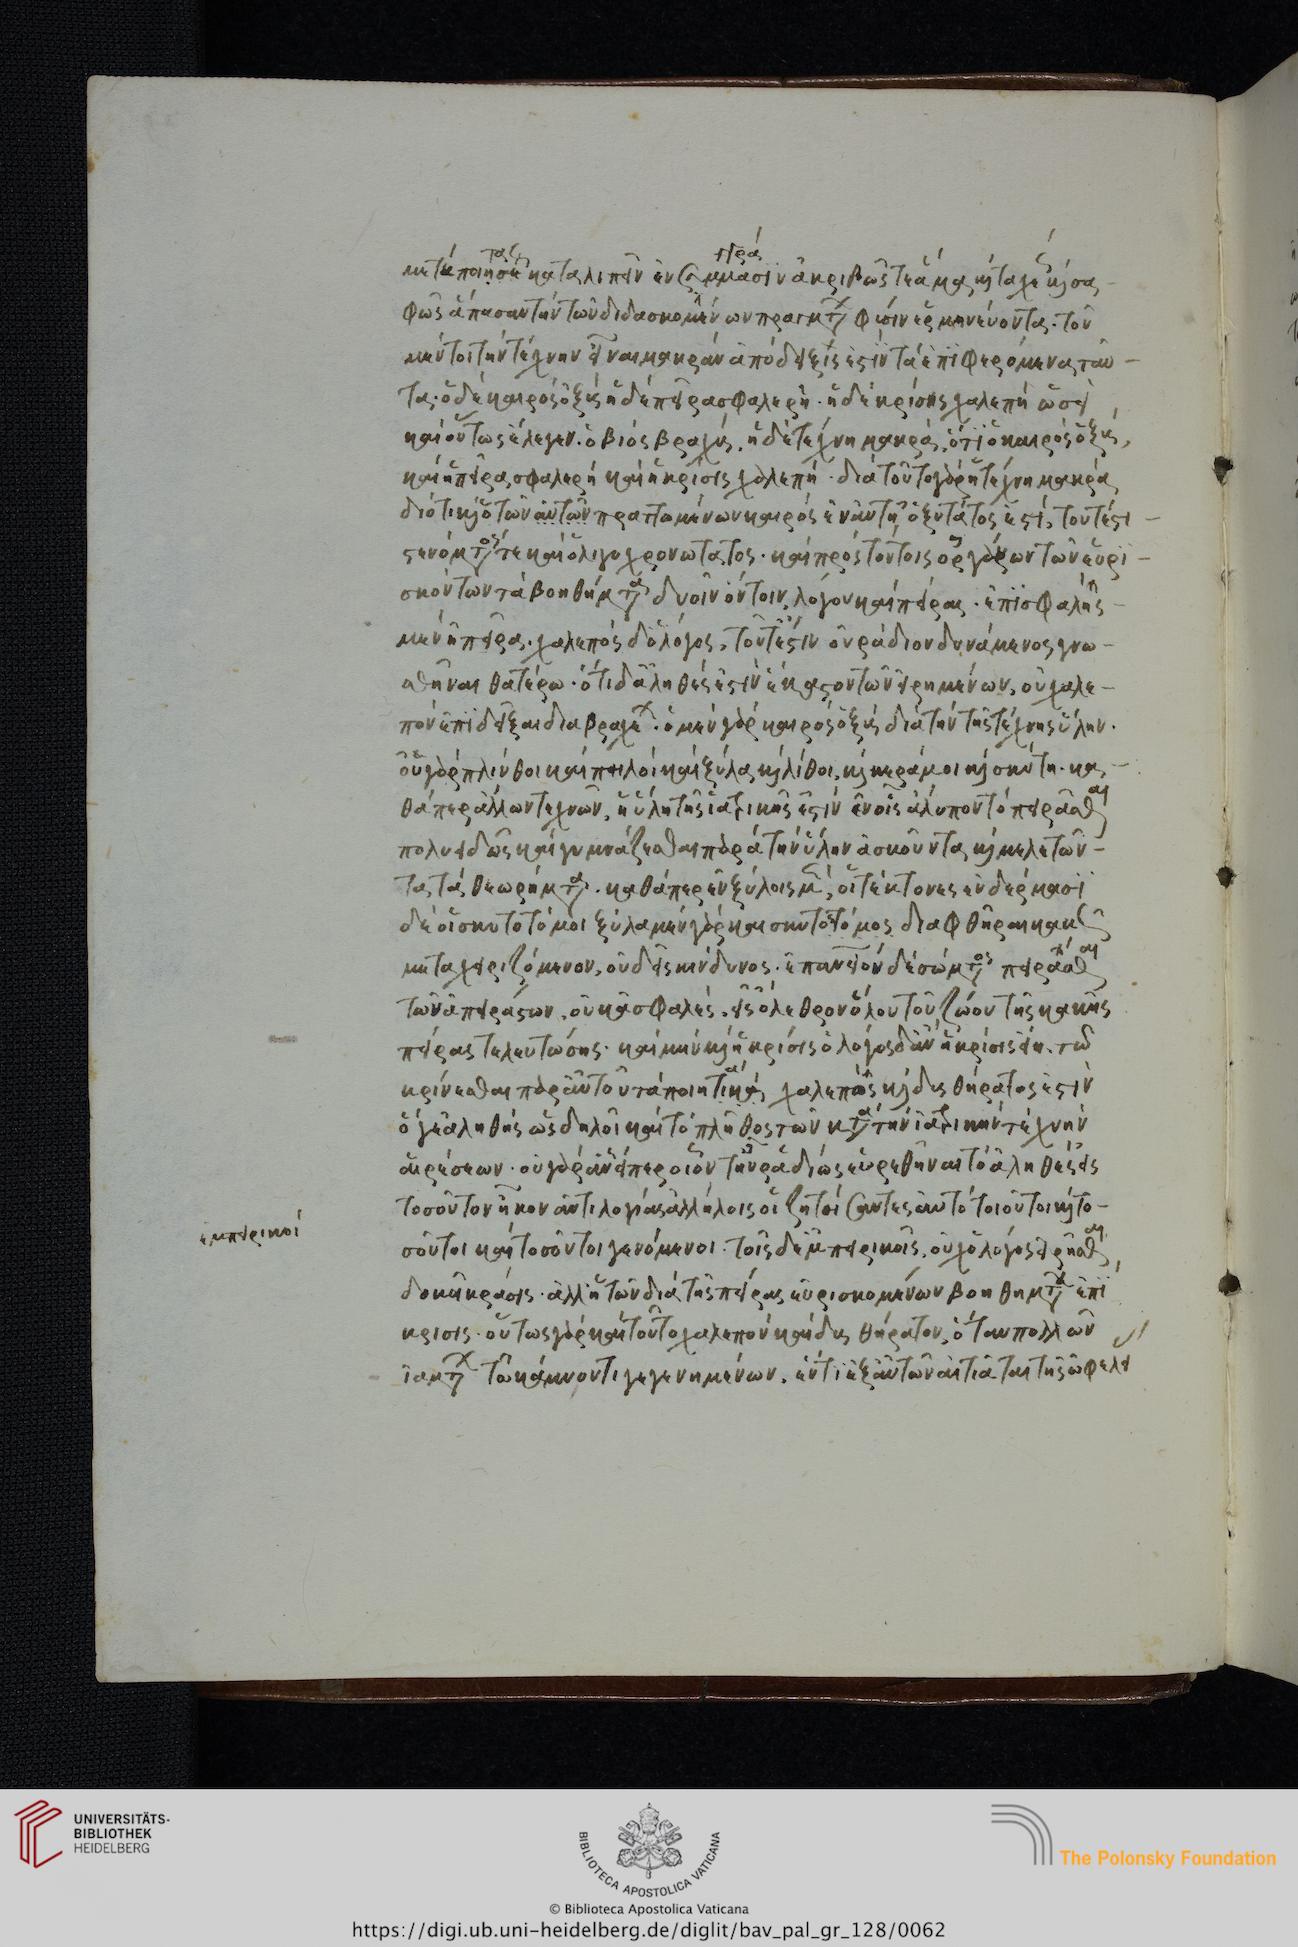 μετὰ ποιήσει καταλιπεῖν ἐν συγγράμμασϊν ἀκριβῶς τε ἅμα καὶ ταχέως καὶ σα-
φῶς ἅπασαν τὴν τῶν διδασκομένων πραγμάτων φύσιν ἑρμηνεύοντας. τοῦ
μέντοι τὴν τέχνην εἶναι μακρὰν ἀπόδειξίς ἐστϊν τὰ ἐπϊφερόμενα ταῦ-
τα. ὁ δὲ καιρὸς ὀξὺς ἡ δὲ πεῖρα σφαλερὴ. ἡ δὲ κρίσις χαλεπὴ ὡσεὶ
καὶ οὕτως ἔλεγεν. ὁ βίος βραχὺς, ἡ δὲ τέχνη μακρὰ, ὅτϊ ὁ καιρὸς ὀξὺς,
καὶ ἡ πεῖρα σφαλερὴ καὶ ἡ κρίσις χαλεπὴ. διὰ τοῦτο γὰρ ἡ τέχνη μακρὰ
διότι καὶ ὁ τῶν αὐτῶν πραττομένων καιρὸς ἐν αὐτῇ ὀξύτατος ἐστὶ, τουτέστι
στενόματος τε καὶ ὀλιγοχρονώτατος. καὶ πρὸς τούτοις ὀργάνων τῶν εὑρϊ-
σκόντων τὰ βοηθήματα δυοῖν ὄντοιν, λόγου καὶ πείρας. ἐπϊσφαλὴς
μὲν ἡ πεῖρα. χαλεπὸς δ ὁ λόγος, τοῦτέστιν οὐ ῥάδιον δυνάμενος γνω-
σθῆναι θατέρω. ὅτι δ ἀληθές ἐστϊν ἕκαστον τῶν εἰρημένων, οὐ χαλε-
πὸν ἐπϊδεῖξαι διὰ βραχέων. ὁ μὲν γὰρ καιρὸς ὀξὺς διὰ τὴν τῆς τέχνης ὕλην.
οὐ γὰρ πλίνθοι καὶ πηλοὶ καὶ ξύλα καὶ λίθοι, καὶ κεράμοι καὶ σκύτη. κα-
θάπερ ἄλλων τεχνῶν, ἡ ὕλη τῆς ἰατρικῆς ἐστϊν ἐν οἷς ἄλυπον τὸ πειρᾶσθαι
πολυειδῶς καὶ γυμνάζεσθαι παρὰ τὴν ὕλην ἀσκοῦντας καὶ μελετῶν-
τας τὰ θεωρήματα. καθάπερ ἐν ξύλοις μὲν, οἱ τέκτονες ἐν δέρμασϊ
δὲ οἱ σκυτοτόμοι ξύλα μὲν γὰρ καὶ σκυτοτόμος διαφθῆραι κακῶς
μεταχειριζόμενον, οὐδεὶς κίνδυνος. ἐπ ἀνθρωπείου δὲ σώματος πειρᾶσθαι
τῶν ἀπειράστων, οὐκ ἀσφαλὲς. εἰς ὄλεθρον ὅλου τοῦ ζώου τῆς κακῆς
πείρας τελευτώσης. καὶ μὴν καὶ ἡ κρίσις ὁ λόγος δ ἂν ἡ κρίσις εἴη. τῷ
κρίνεσθαι παρ αὐτοῦ τὰ ποιητικὰ, χαλεπὸς καὶ δυσθήρατος ἐστὶν
ὅ γε ἀληθὴς ὡς δηλοῖ καὶ τὸ πλῆθος τῶν κατὰ τὴν ἰατρικὴν τέχνην
αἱρέσεων. οὐ γὰρ ἂν εἴπερ οἷόν τ ἦν ῥαδίως εὑρεθῆναι τὸ ἀληθὲς εἰς
τοσοῦτον ἧκον ἀντιλογίας ἀλλήλοις οἱ ζητοῦντες αὐτὸ τοιοῦτοι καὶ το-
ἐμπειρικοὶ
σοῦτοι καὶ τοσοῦτοι γενόμενοι. τοῖς δ ἐμπειρικοῖς, οὐχ ὁ λόγος εἰρῆσθαι
δοκεῖ κράσις. ἀλλ ἡ τῶν διὰ τῆς πείρας εὑρισκομένων βοηθημάτων ἐπϊ
κρισις. οὕτως γὰρ καὶ τοῦτο χαλεπὸν καὶ δυσθήρατον, ὅταν πολλῶν
ἰαμάτων τῷ κάμνοντι γεγενημένων, ἕν τϊ ἐξ αὐτῶν αἰτιᾶται τῆς ὠφελεί
UNIVERSITÄTS-
BIBLIOTHEK
HEIDELBERG
BIBLIOTECA APOSTOLICA VATICANA
The Polonsky Foundation
© Biblioteca Apostolica Vaticana
https://digi.ub.uni-heidelberg.de/diglit/bav_pal_gr_128/0062